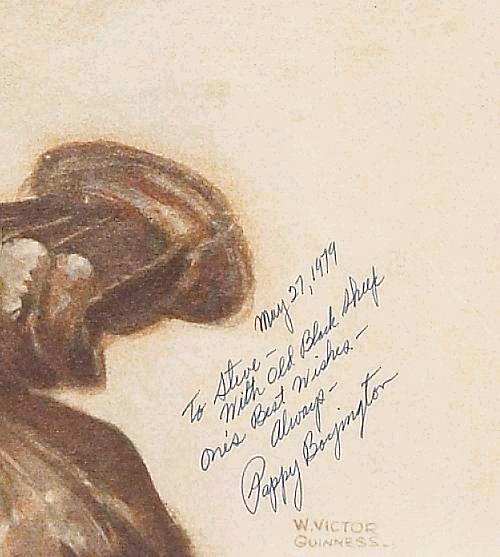 May 27, 1979
To Steve -
With Old Black Sheep
One's Best Wishes -
Always -
Pappy Boyington
W. VICTOR
GUINNESS -